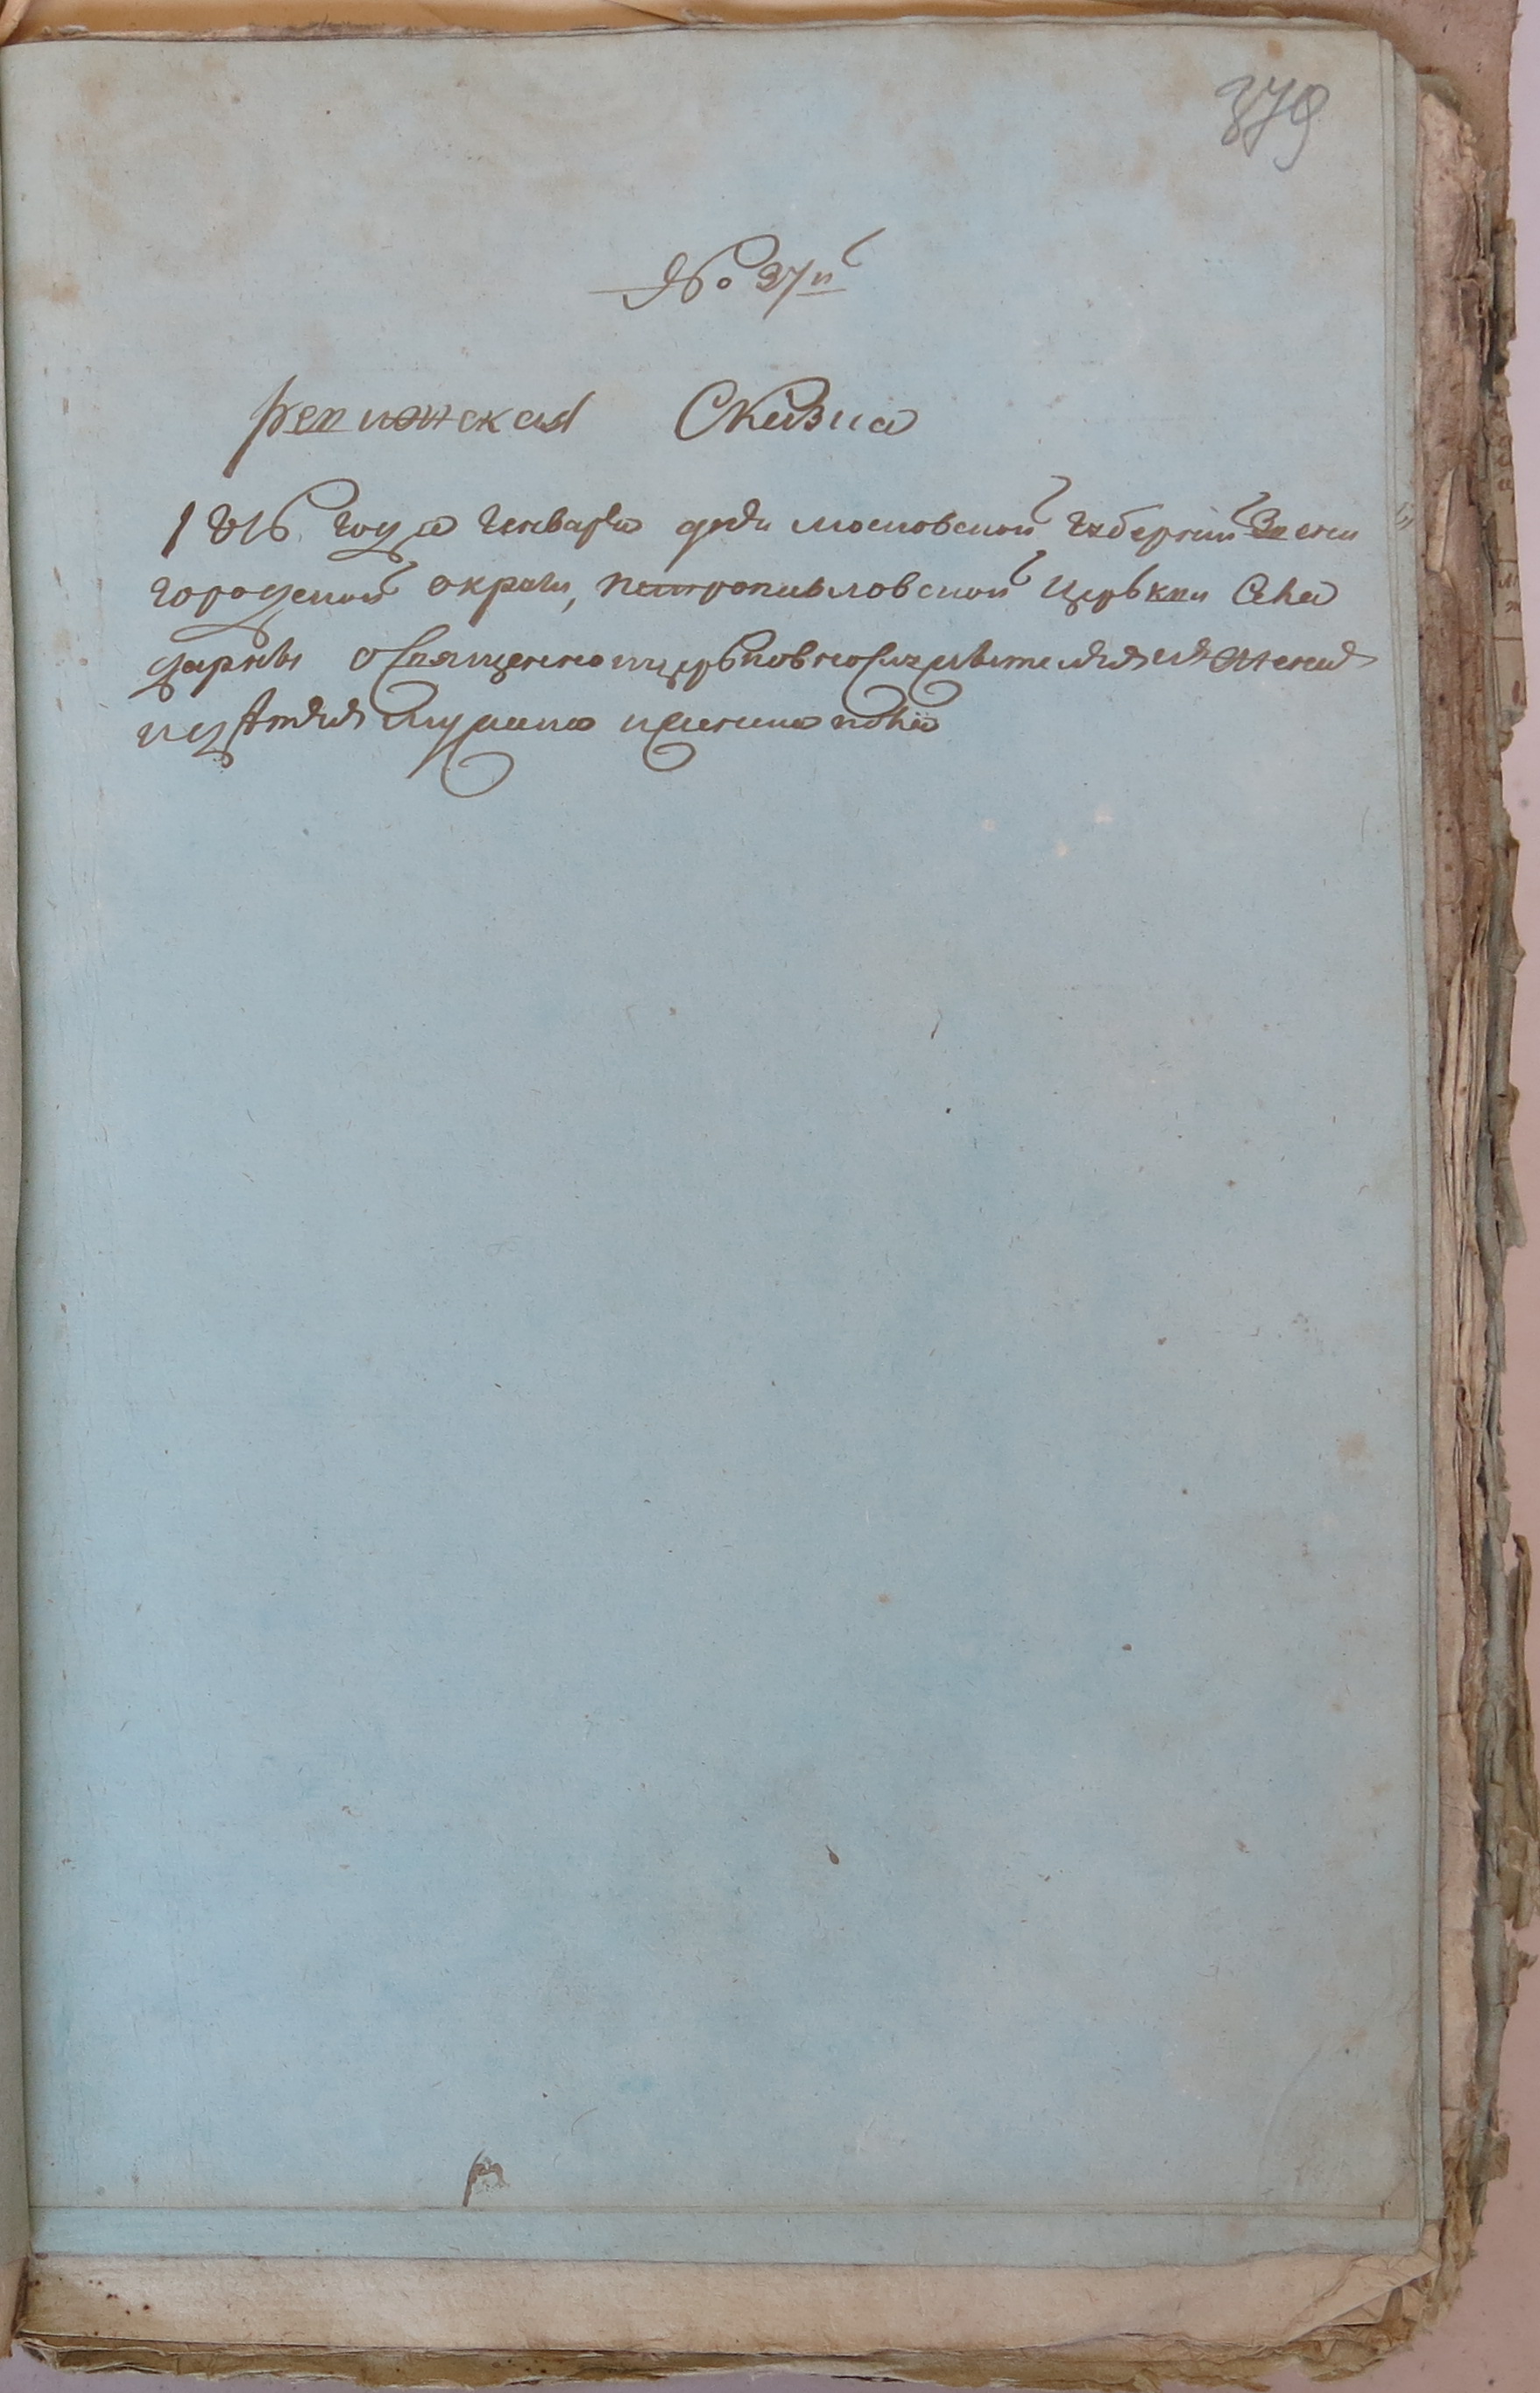 379
№ 37й
Ревижская Сказка
1816 года Генваря дня Московской Губернии Звени
городской округи, петропавловской Церькви Села
дарны о Священноцерьковнослужителях и ихъ
мужеска и женска пола